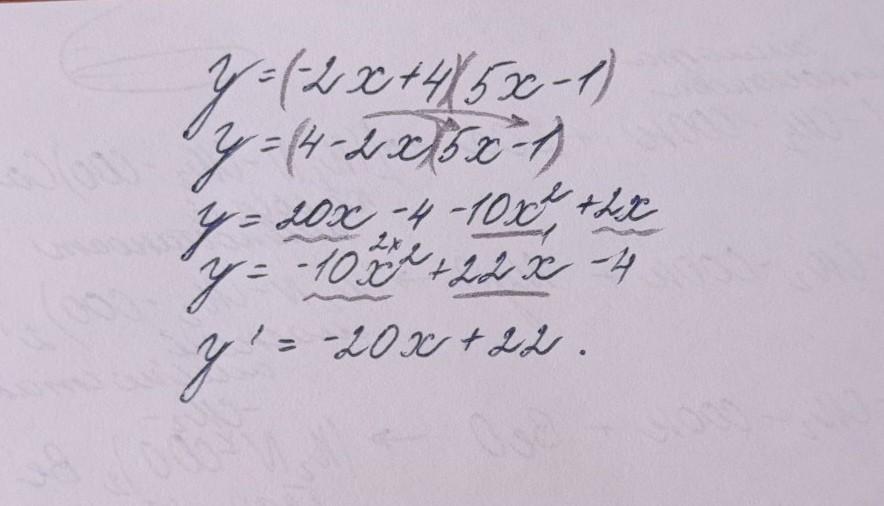 y = (-2x+4)(5x-1)
y = (4-2x)(5x-1)
y = 20x -4 -10x² +2x
2x 1
y = -10x² +22x -4
y' = -20x + 22.